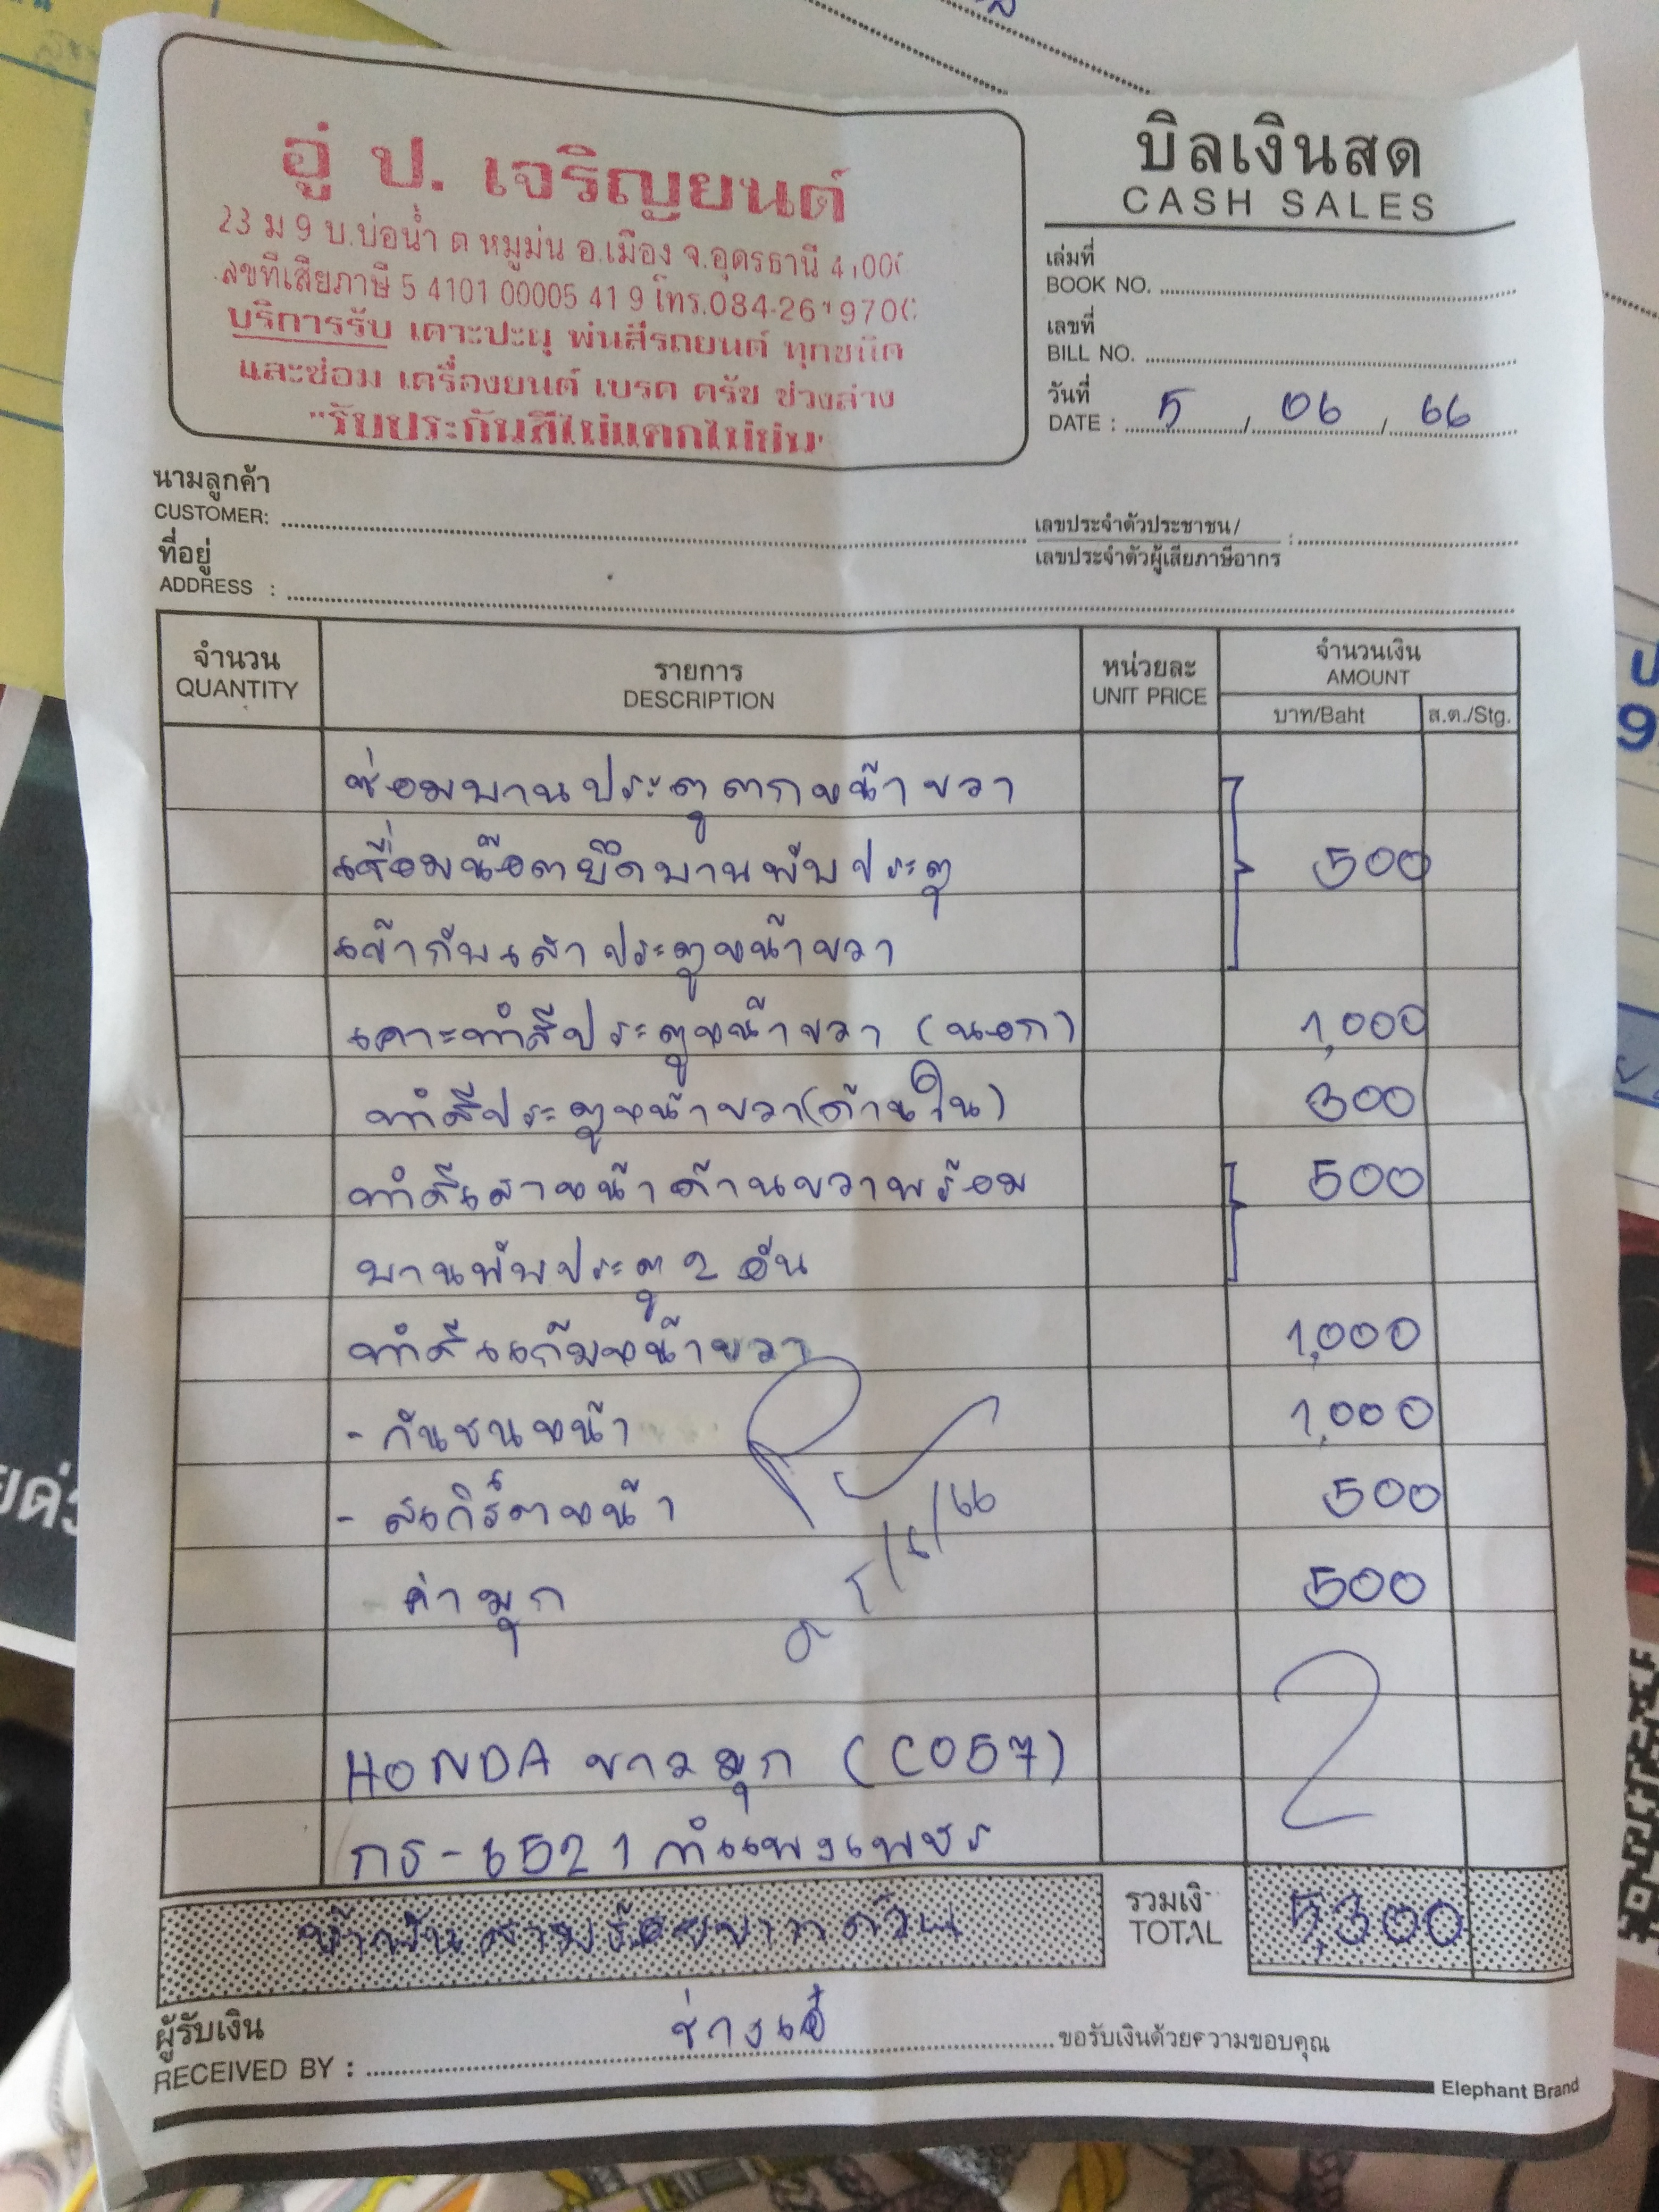 อู่ ป. เจริญยนต์
23 ม 9 บ.บ่อน้ำ ต หมูม่น อ.เมือง จ.อุดรธานี
ลขที่เสียภาษี 5 4101 00005 41 9 โทร.
บริการรับ เคาะปะผุ พ่นสีรถยนต์ ทุกชนิด
และซ่อม เครื่องยนต์ เบรค ครัช ช่วงล่าง
"รับประกันสีไม่แตกไม่ย่น"
บิลเงินสด
CASH SALES
เล่มที่
BOOK NO.
เลขที่
BILL NO.
วันที่
DATE : 5 / 06 / 66
นามลูกค้า
CUSTOMER:
เลขประจำตัวประชาชน/
เลขประจำตัวผู้เสียภาษีอากร :
ที่อยู่
ADDRESS :
จำนวน รายการ หน่วยละ จำนวนเงิน
QUANTITY DESCRIPTION UNIT PRICE AMOUNT
บาท/Baht ส.ต./Stg.
ซ่อมบานประตูตกหน้าขวา
เชื่อมน๊อตยึดบานพับประตู 500
เข้ากับเสาประตูหน้าขวา
เคาะทำสีประตูหน้าขวา (นอก) 1,000
ทำสีประตูหน้าขวา(ด้านใน) 300
ทำสีเสาหน้าด้านขวาพร้อม 500
บานพับประตู 2 อัน
ทำสีแก้มหน้าขวา 1,000
- กันชนหน้า 1,000
- สเกิร์ตหน้า 500
ค่ามุก 500
HONDA ขาวมุก (C057)
กธ-6521 กำแพงเพชร
ห้าพันสามร้อยบาทถ้วน
รวมเงิ
TOTAL 5,300
ผู้รับเงิน
RECEIVED BY : ช่างเอ๋ ขอรับเงินด้วยความขอบคุณ
Elephant Brand